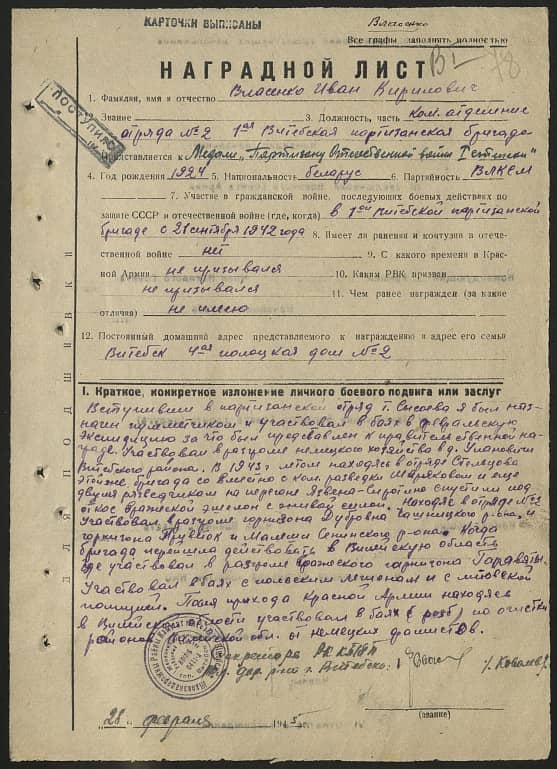 КАРТОЧКИ ВЫПИСАНЫ
Власенко
Все графы заполнять полностью
НАГРАДНОЙ ЛИСТ
ПОСТУПИЛО
1. Фамилия, имя и отчество Власенко Иван Кирилович
Звание 3. Должность, часть ком. отделения
отряда №2 1ая Витебская партизанская бригада
Представляется к Медали "Партизану Отечественной войны I степени"
4. Год рождения 1924 5. Национальность беларус 6. Партийность ВЛКСМ
7. Участие в гражданской войне, последующих боевых действиях по
защите СССР и отечественной войне (где, когда) в 1ой Витебской партизанской
бригаде с 21 сентября 1942 года 8. Имеет ли ранения и контузии в отече-
ственной войне нет 9. С какого времени в Крас-
ной Армии не призывался 10. Каким РВК призван
не призывался 11. Чем ранее награжден (за какие
отличия) не имею
12. Постоянный домашний адрес представляемого к награждению и адрес его семьи
Витебск 4ая полоцкая дом №2
ДЛЯ ПОДШИВКИ
I. Краткое, конкретное изложение личного боевого подвига или заслуг
Вступивши в партизанский отряд т. я был наз-
начен и участвовал в боях в февральскую
экспедицию за что был представлен к правительственной на-
граде. Участвовал в разгроме немецкого хозяйства в д. Улановичи
Витебского района. В 1943 г. летом находясь в отряде
этой же бригады совместно с ком. разведки и еще
двумя разведчиками на перегоне Язвено-Сиротино спустили под
откос вражеский эшелон с живой силой. Находясь в отряде №2
Участвовал в разгроме гарнизона Дубровна р-она и
гарнизона и Сенинского р-она. Когда
бригада перешла действовать в Вилейскую область
где участвовал в разгроме вражеского гарнизона
Участвовал в боях с польским легионом и с литовской
полицией. После прихода Красной Армии находясь
в Вилейской области участвовал в боях по очистки
районов обл. от немецких фашистов.
Секретарь РК КП(б)Б
г. Витебска Ковалев
(звание)
"28" февраля 1945 г.